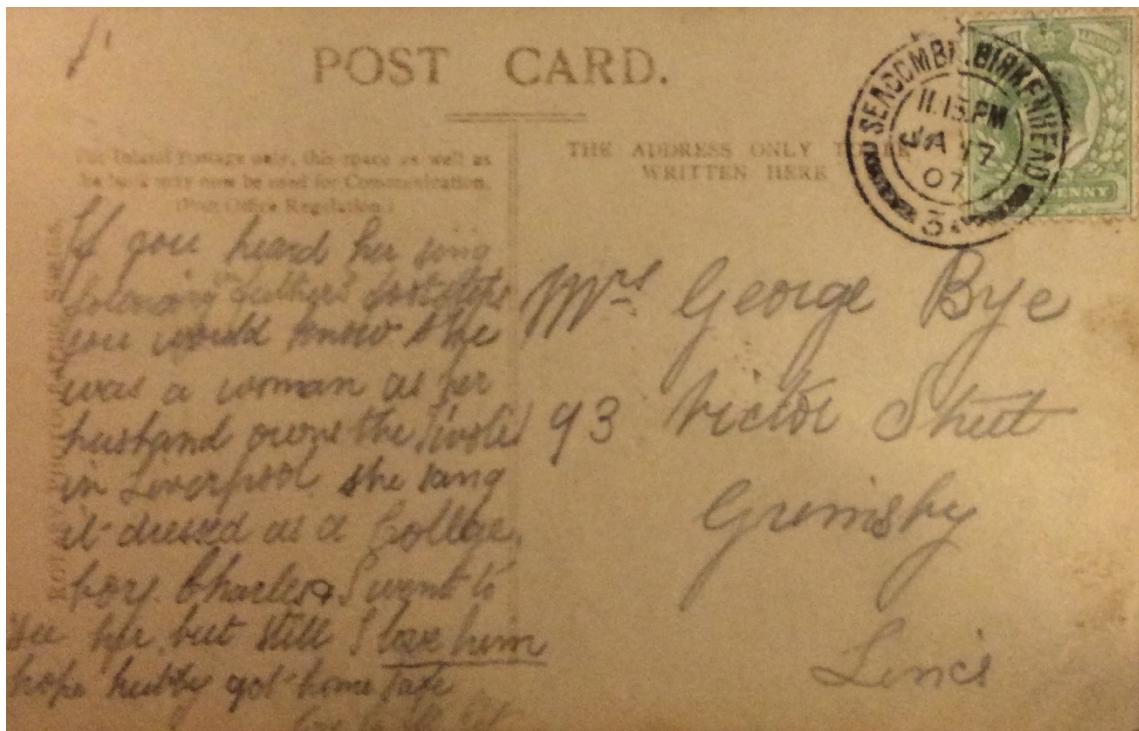 POST CARD.
For Inland Postage only, this space as well as
the back may now be used for Communication.
(Post Office Regulation.)
THE ADDRESS ONLY TO BE
WRITTEN HERE
SEACOMBE. BIRKENHEAD
11.15 PM
JA 17
07
3
HALFPENNY
If you heard her sing
following fathers footsteps
you would know she
was a woman as her
husband owns the Tivoli
in Liverpool she sang
it dressed as a College
boy. Charles & I went to
see her but still I love him
hope hubby got home safe
Mrs George Bye
93 Victor Street
Grimsby
Lincs
ROTARY PHOTOGRAPHIC SERIES